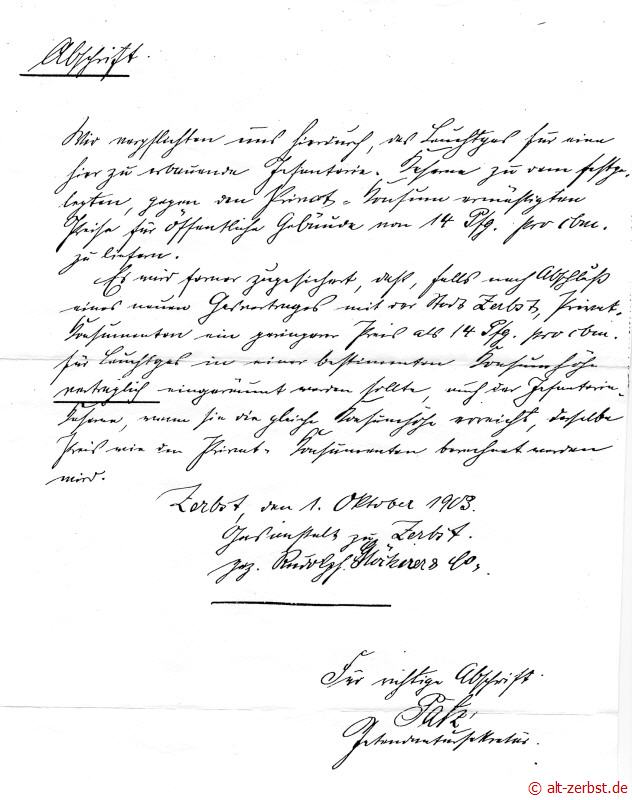 Abschrift.
Wir verpflichten uns hierdurch, das Leuchtgas für eine
hier zu erbauende Infanterie-Kaserne zu dem festge-
legten, gegen den Privat-Konsum ermäßigten
Preise für öffentliche Gebäude von 14 Pfg. pro cbm.
zu liefern.
Es wird ferner zugesichert, daß, falls nach Abschluß
eines neuen Gasvertrages mit der Stadt Zerbst, Privat-
Konsumenten ein geringerer Preis als 14 Pfg. pro cbm.
für Leuchtgas in einer bestimmten Konsumhöhe
vertraglich eingeräumt werden sollte, auch der Infanterie-
Kaserne, wenn sie die gleiche Konsumhöhe erreicht, derselbe
Preis wie den Privat-Konsumenten berechnet werden
wird.
Zerbst, den 1. Oktober 1903.
Gasanstalt zu Zerbst.
gez. Rudolph & Co.
Für richtige Abschrift
Intendantursekretär.
© alt-zerbst.de